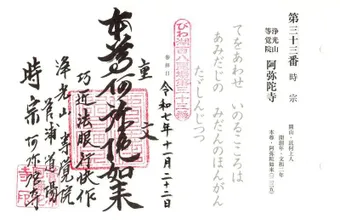 第三十三番 時宗
浄光山
等覚院 阿弥陀寺
てをあわせ いのるこころは
あみだじの みだんのほんがん
たゞしんじつ
びわ湖百八霊場第三十三番
参拝日 令和七年十一月二十二日
重文
本尊阿弥陀如来
巧匠法眼行快作
浄光山等覚院
菅浦道場
時宗阿弥陀寺